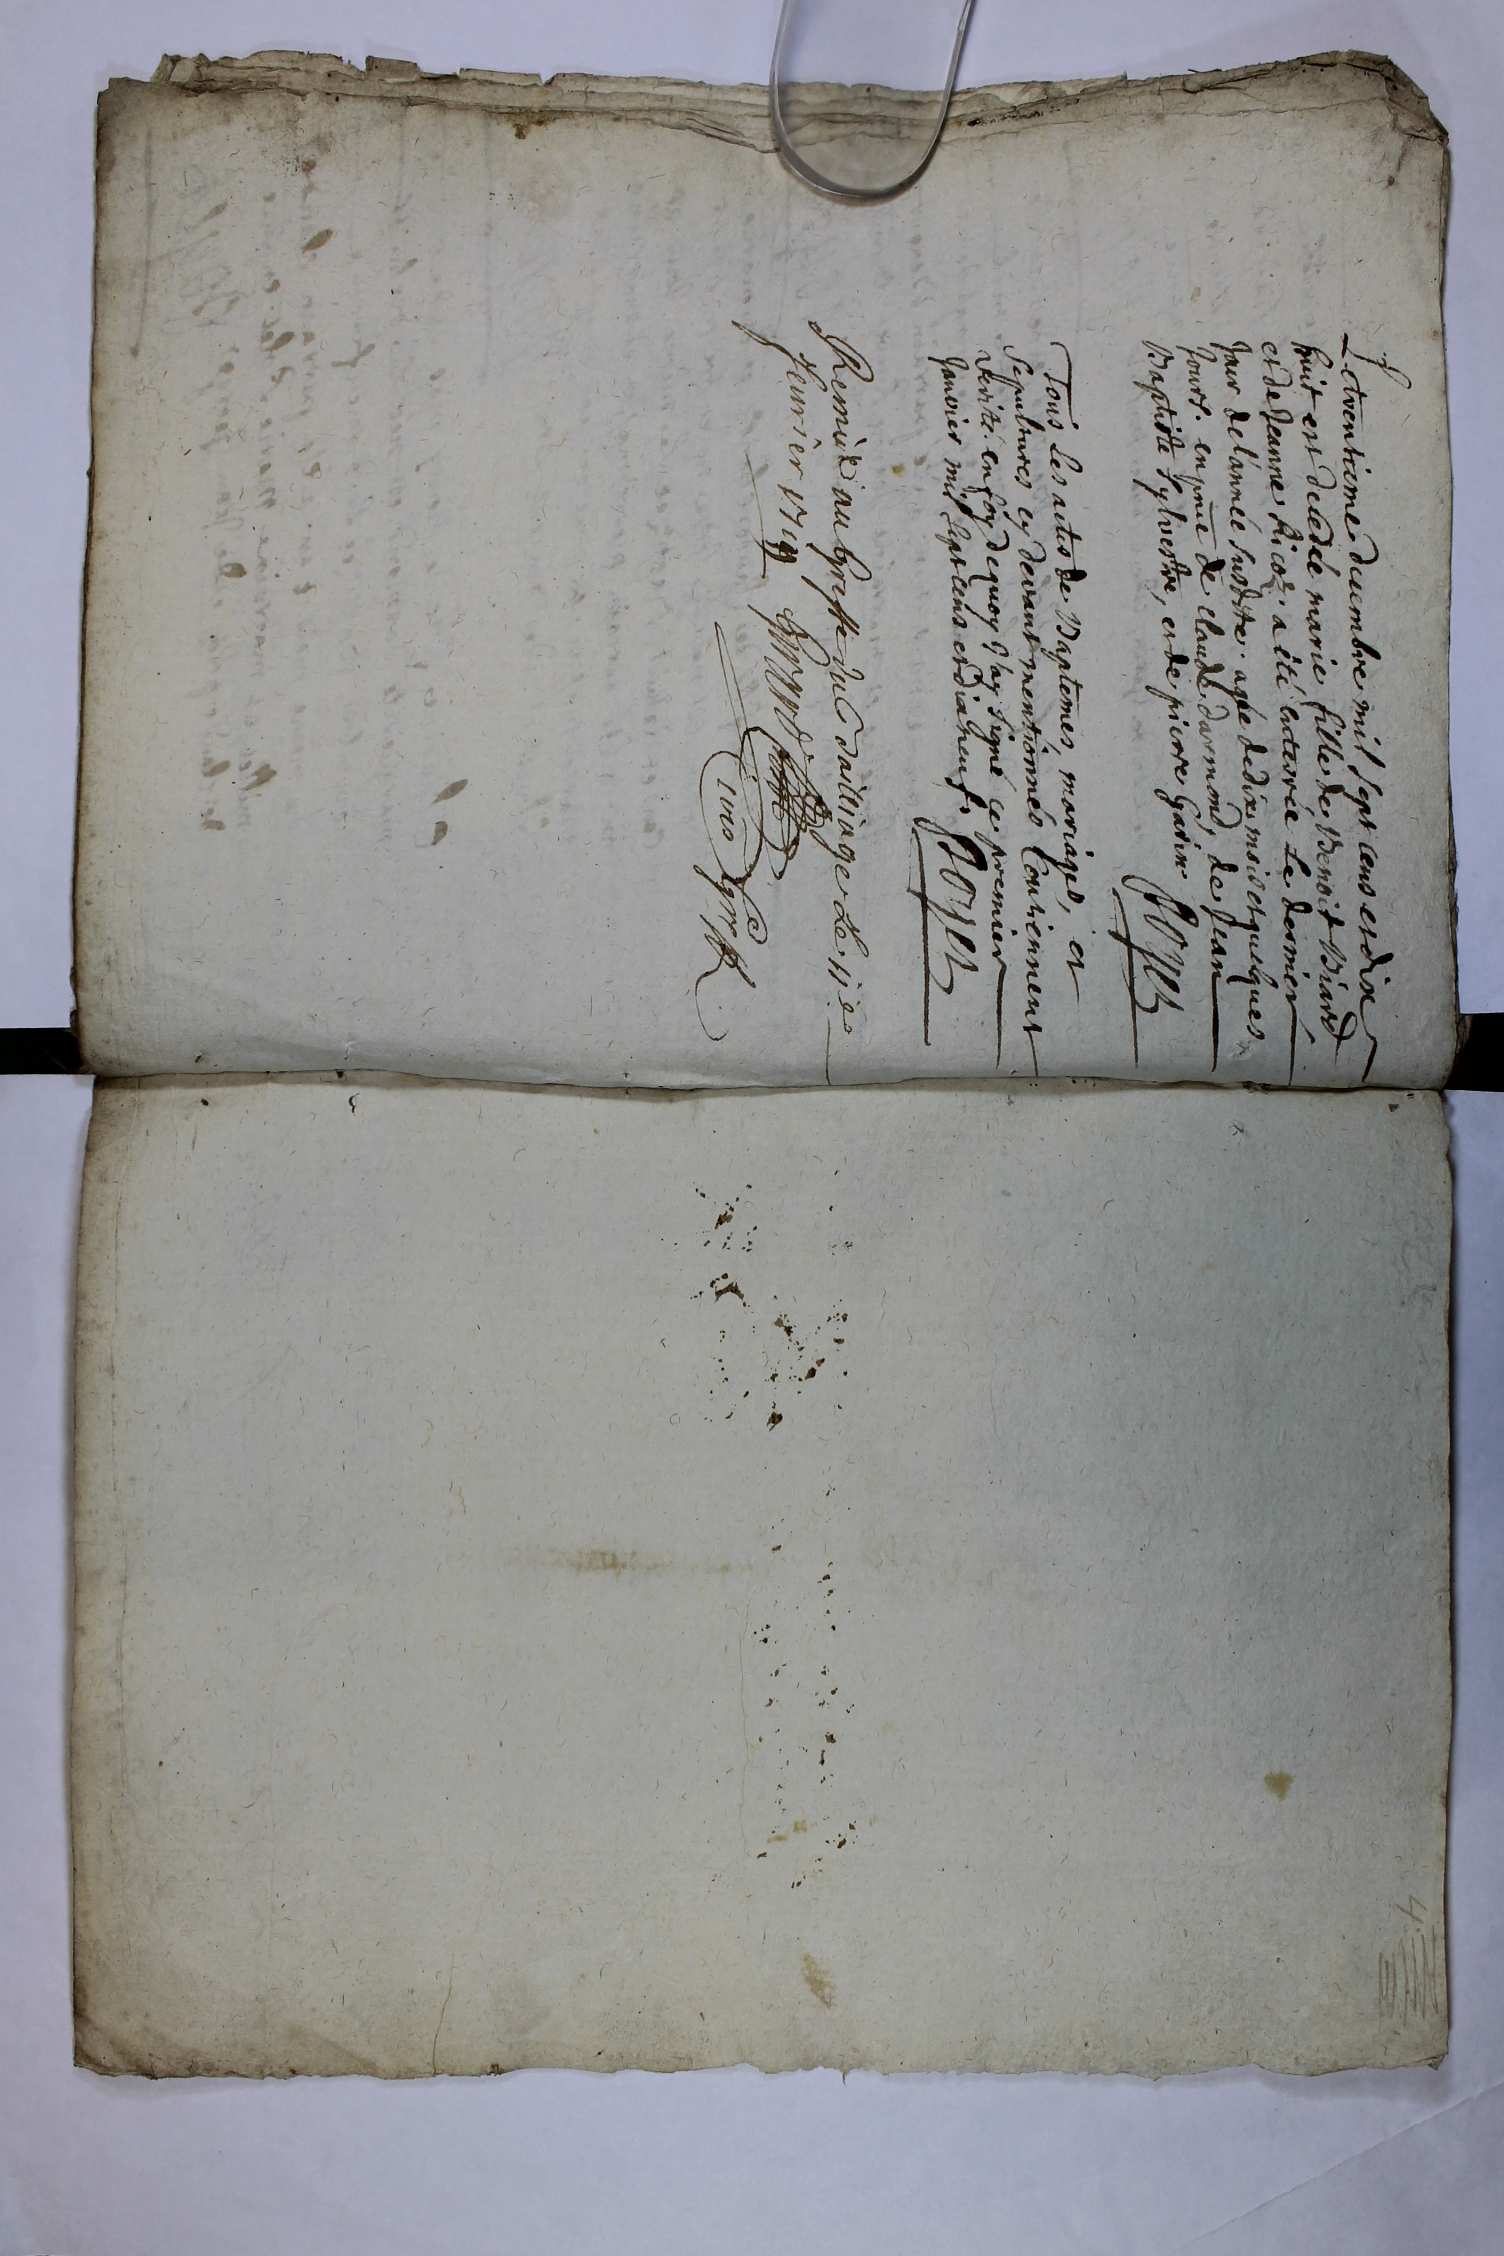 Le trentieme decembre mil sept cens et dix
huit est decedée marie fille de Benoit Biard
et de Jeanne a été enterrée Le dernier
jour de l'année susditte agée de dix mois et quelques
jours. en pnce de claude darmond, de Jean
Baptiste sylvestre, et de pierre Garin
Boyer
Tous Les actes de Baptemes, mariages, et
Sepultures cy devant mentionnés Contiennent
Verité. en foy de quoy J'ay signé ce premier
Janvier mil sept cens et dix neuf.
Boyer
Remix au greffe du Bailliage Le 11e
feurier 1719
4